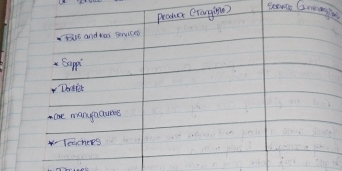 Product (Tangible) Service (Intangible)
* Bus and taxi services
* Suppi
* Dentist
* Car manufacturers
* Teachers